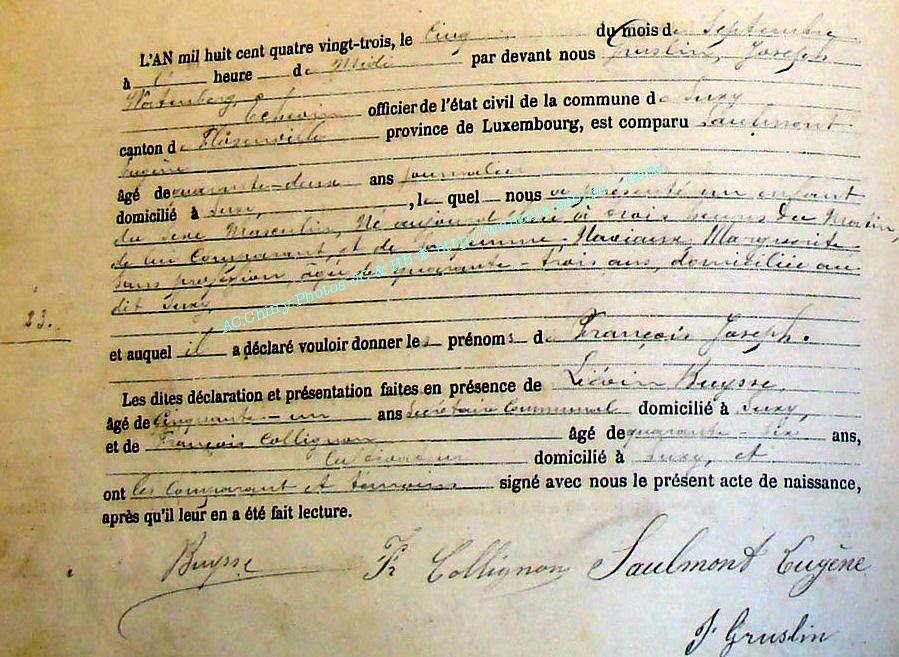 L'AN mil huit cent quatre vingt-trois, le Cinq du mois de Septembre
à l' heure de Midi par devant nous Gruslin, Joseph
Echevin officier de l'état civil de la commune de Suxy
canton de Florenville province de Luxembourg, est comparu Saulmont
Eugène
âgé de quarante-deux ans journalier
domicilié à Suxy, le quel nous a présenté un enfant
du sexe Masculin, Né aujourd'hui à trois heures du Matin,
de lui Comparant, et de sa femme Marguerite
sans profession, âgée de quarante-trois ans, domiciliée au
dit Suxy,
23.
et auquel il a déclaré vouloir donner les prénoms de François Joseph.
Les dites déclaration et présentation faites en présence de Liévin Buysse,
âgé de Cinquante-un ans secrétaire Communal domicilié à Suxy,
et de François Collignon âgé de quarante-six ans,
Cultivateur domicilié à Suxy, et
ont les Comparant et témoins signé avec nous le présent acte de naissance,
après qu'il leur en a été fait lecture.
Buysse Fr Collignon Saulmont Eugène
J Gruslin
AC.Chiny-Photos